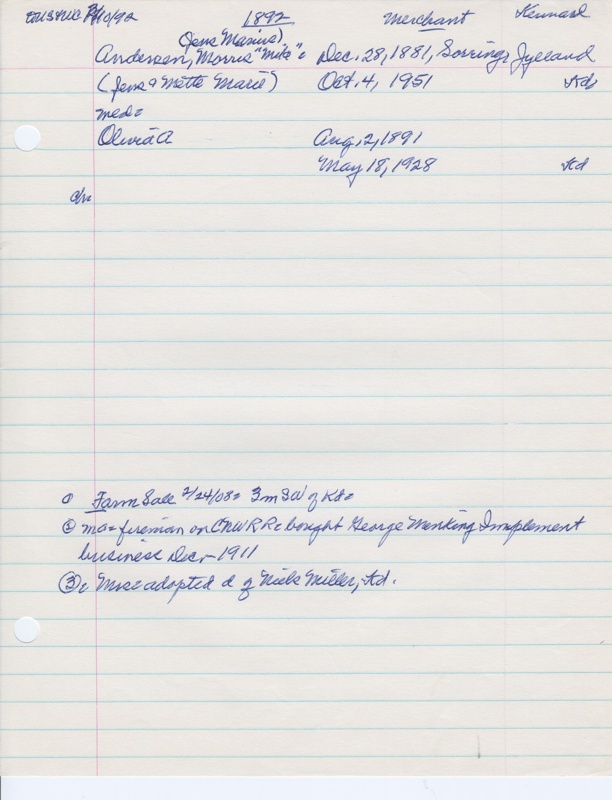 1892 Merchant Kennard
(Jens Marius)
Andersen, Morris "Mike": Dec. 28, 1881, Sorring, Jylland
(Jens & Mette Marie) Oct. 4, 1951 Kd
med=
Olivia A Aug. 2, 1891
May 18, 1928 Kd
ch:
① Farm Sale 2/24/08= 3m SW of Kd=
② ma= fireman on CNWRR: bought George Menking Implement
business Dec. 1911
③: Mos= adopted d of Niels Miller, Kd.